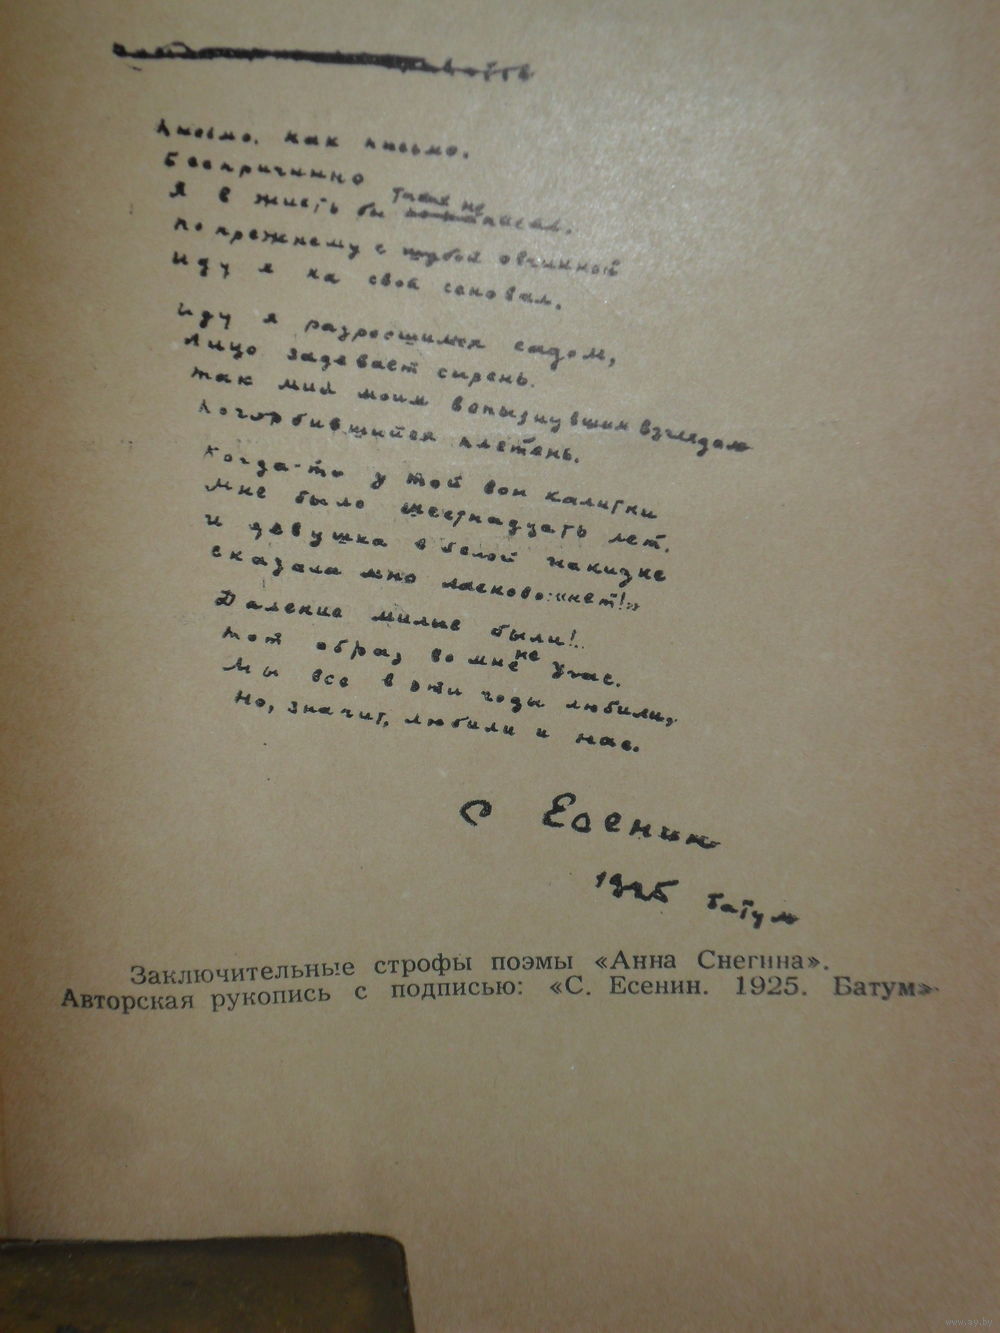 Письмо, как письмо.
Беспричинно
таких не
Я в жисть бы писал.
По прежнему с шубой овчинной
Иду я на свой сеновал.
Иду я разросшимся садом,
Лицо задевает сирень.
Так мил моим вспыхнувшим взглядам
Погорбившийся плетень.
Когда-то у той вон калитки
Мне было шестнадцать лет.
И девушка в белой накидке
Сказала мне ласково: «нет!»
Далекие милые были!..
не
Тот образ во мне угас.
Мы все в эти годы любили,
Но, значит, любили и нас.
С Есенин
1925 Батум
Заключительные строфы поэмы «Анна Снегина».
Авторская рукопись с подписью: «С. Есенин. 1925. Батум»
www.ay.by